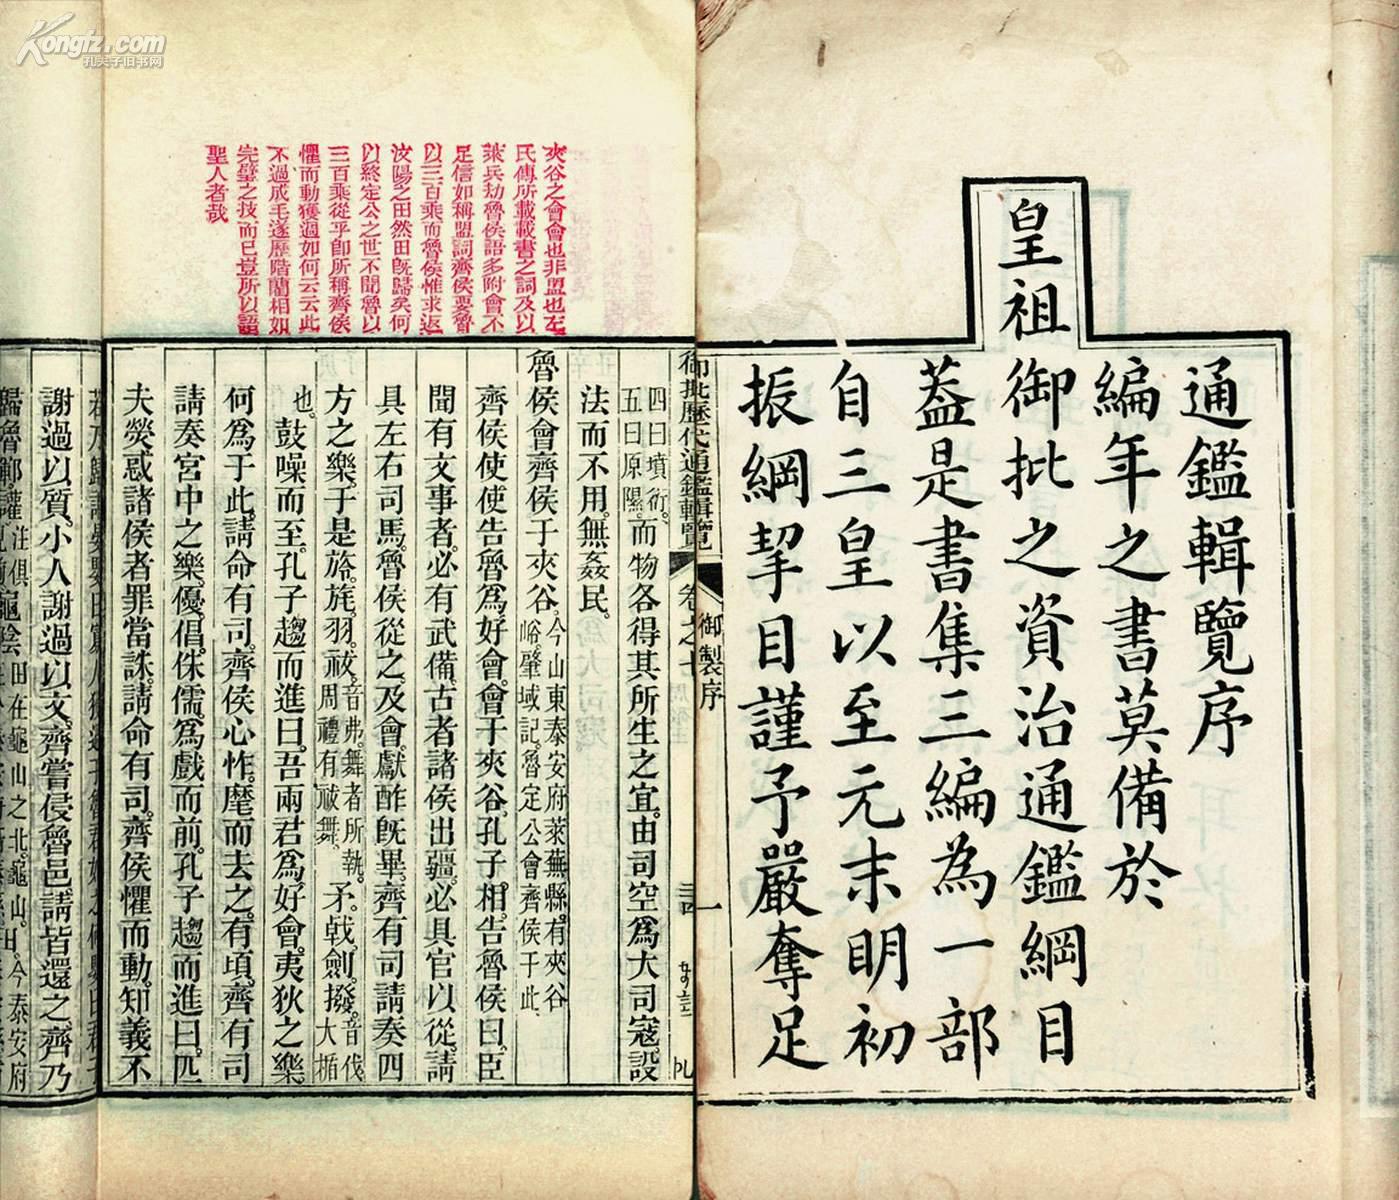 通鑑輯覽序
編年之書莫備於
皇祖御批之資治通鑑綱目
葢是書集三編為一部
自三皇以至元末明初
振綱挈目謹予嚴奪足
御製序
一
御批歷代通鑑輯覽
卷之七
夾谷之會會也非盟也左
氏傳所載載書之詞及以
萊兵劫魯侯語多附會不
足信如稱盟詞齊侯要魯
以三百乘而魯侯惟求返
汶陽之田然田旣歸矣何
以終定公之世不聞魯以
三百乘從乎卽所稱齊侯
懼而動獲過如何云云此
不過成毛遂歷階藺相如
完璧之技而已豈所以語
聖人者哉
四曰墳衍
五曰原隰。而物各得其所生之宜。由司空爲大司寇設
法而不用。無姦民。
魯侯會齊侯于夾谷。今山東泰安府萊蕪縣。有夾谷
峪。肇域記。魯定公會齊侯于此。
齊侯使使告魯爲好會。會于夾谷。孔子相。告魯侯曰。臣
聞有文事者。必有武備。古者諸侯出疆。必具官以從。請
具左右司馬。魯侯從之。及會。獻酢旣畢。齊有司請奏四
方之樂。于是旍。旄。羽。祓。音弗。舞者所執。周禮有祓舞。矛。戟。劍。撥。音伐大楯
也。鼓噪而至。孔子趨而進曰。吾兩君爲好會。夷狄之樂
何爲于此。請命有司。齊侯心怍。麾而去之。有頃。齊有司
請奏宮中之樂。優。倡。侏儒。爲戲而前。孔子趨而進曰。匹
夫熒惑諸侯者罪當誅。請命有司。齊侯懼而動。知義不
謝過以質。小人謝過以文。齊嘗侵魯邑。請皆還之。齊乃
Kongfz.com
孔夫子旧书网